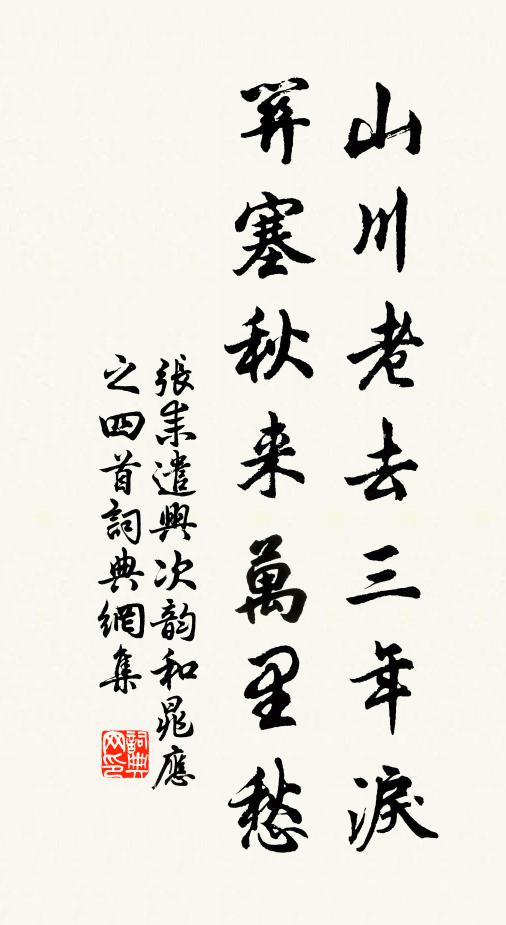 山川老去三年淚
關塞秋来萬里愁
張耒遣興次韵和晁應
之四首詞典網集
詞典
网印